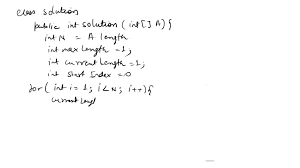 class solution
public int solution (int[] A){
int N = A length
int max length = 1;
int current length = 1;
int start Index = 0
for( int i = 1; i < N; i++){
current Leng